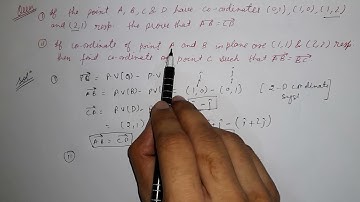 ① If the point A, B, C & D have co-ordinates (0,1), (1,0), (1,2)
and (2,1) resp. the prove that AB = CD
② If co-ordinate of point A and B in plane are (1,1) & (2,2) resp
then find co-ordinate of point C such that AB = BC
① = PV(Q) - P.V
AB = PV(B) - PV( (1,0) - (0,1) [2-D coordinate
CD = PV(D) - P - j
= (2,1) - (i+2j)
AB = CD